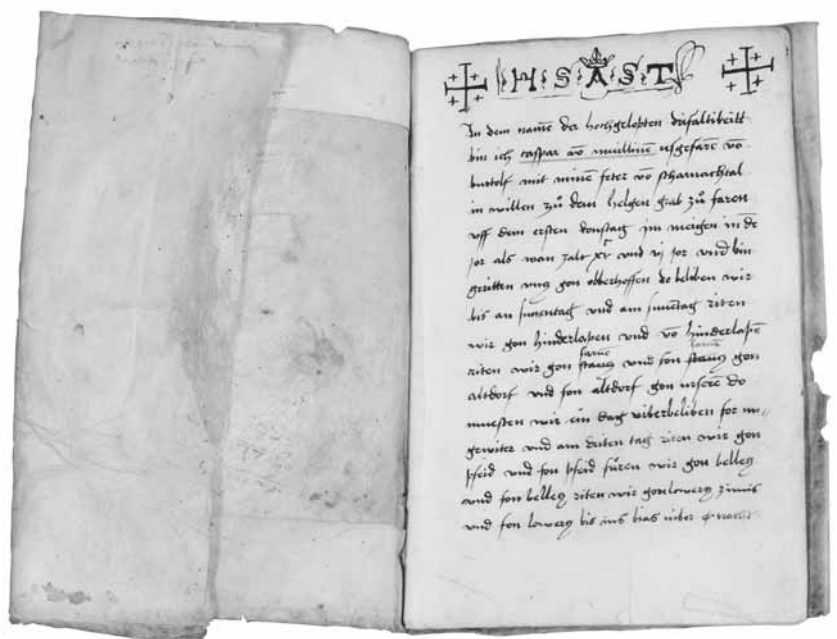 H · S · A · S · T
In dem name der hochgelopten drifaltikeitt
bin ich caspar vō mullinē usgefarē vō
burtolf mit minē feter vō scharnachtal
in willen zů dem helgen grab zů faren
uff dem ersten donstag im meigen in dē
jor als man zalt xvͨ und vj jor und bin
gritten uncz gon oberhoffen do beliben wir
bis an sunentag und am sunētag riten
wir gon hinderlapen und vō hinderlapē
riten wir gon sarnē und fon sarnē gon
altdorf und fon altdorf gon urserē do
muesten wir ein dag uiberbeliben for un„
gewiter und am driten tag riten wir gon
pfeid und fon pfeid füren wir gon belletz
und fon belletz riten wir gon lowertz zimis
und fon lowertz bis ins bias uiber